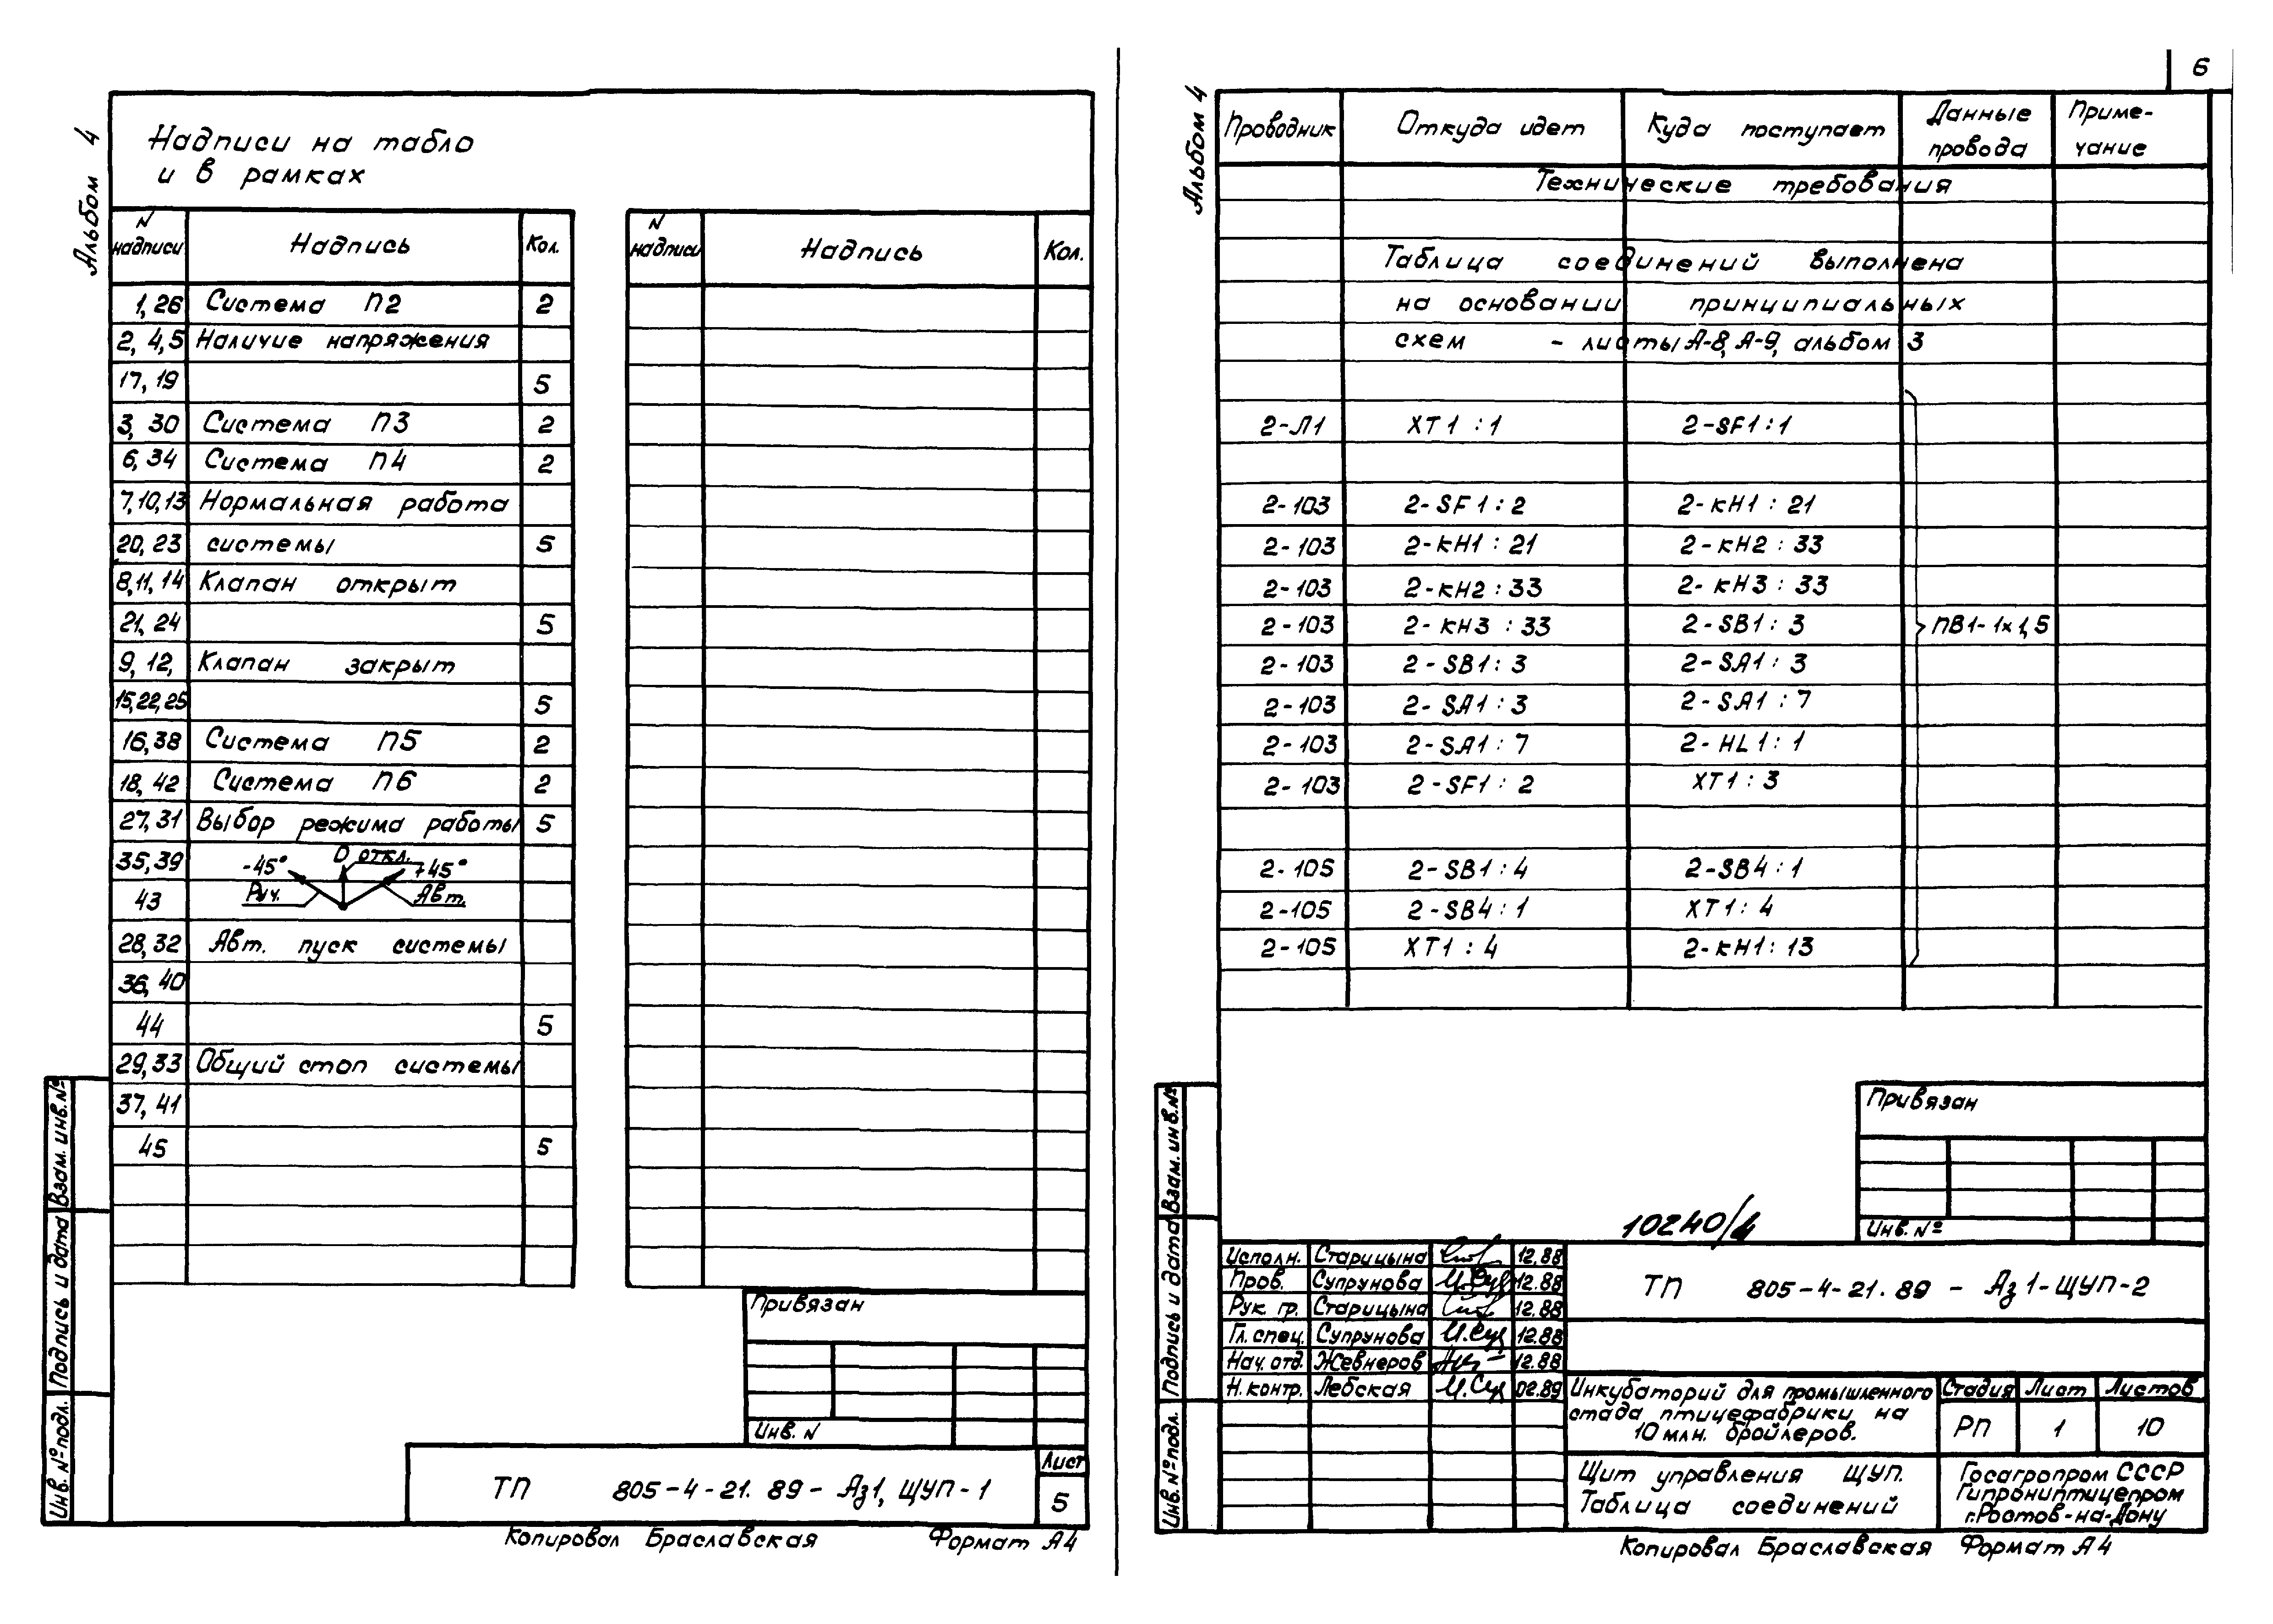 Альбом 4
Надписи на табло
и в рамках
N надписи Надпись Кол.
N надписи Надпись Кол.
1, 26 Система П2 2
2, 4, 5 Наличие напряжения
17, 19 5
3, 30 Система П3 2
6, 34 Система П4 2
7, 10, 13 Нормальная работа
20, 23 системы 5
8, 11, 14 Клапан открыт
21, 24 5
9, 12, Клапан закрыт
15, 22, 25 5
16, 38 Система П5 2
18, 42 Система П6 2
27, 31 Выбор режима работы 5
35, 39 -45° 0 откл. +45°
43 Руч. Авт.
28, 32 Авт. пуск системы
36, 40
44 5
29, 33 Общий стоп системы
37, 41
45 5
Взам. инв. №
Подпись и дата
Инв. № подл.
Привязан
Инв. N
ТП 805-4-21.89 - Аз1, ЩУП-1
Лист
5
Копировал Браславская Формат А4
6
Альбом 4
Проводник Откуда идет Куда поступает Данные провода Приме-чание
Технические требования
Таблица соединений выполнена
на основании принципиальных
схем - листы А-8, А-9, альбом 3
2-Л1 XT1 : 1 2-SF1 : 1
2-103 2-SF1 : 2 2-кН1 : 21
2-103 2-кН1 : 21 2-кН2 : 33
2-103 2-кН2 : 33 2-кН3 : 33
2-103 2-кН3 : 33 2-SB1 : 3 ПВ1-1×1,5
2-103 2-SB1 : 3 2-SA1 : 3
2-103 2-SA1 : 3 2-SA1 : 7
2-103 2-SA1 : 7 2-HL1 : 1
2-103 2-SF1 : 2 XT1 : 3
2-105 2-SB1 : 4 2-SB4 : 1
2-105 2-SB4 : 1 XT1 : 4
2-105 XT1 : 4 2-кН1 : 13
Взам. инв. №
Подпись и дата
Инв. № подл.
Привязан
Инв. №
10240/4
Исполн. Старицына 12.88
Пров. Супрунова 12.88
Рук. гр. Старицына 12.88
Гл. спец. Супрунова 12.88
Нач. отд. Жевнеров 12.88
Н. контр. Лебская 02.89
ТП 805-4-21.89 - Аз1-ЩУП-2
Инкубаторий для промышленного
стада птицефабрики на
10 млн. бройлеров.
Стадия Лист Листов
РП 1 10
Щит управления ЩУП.
Таблица соединений
Госагропром СССР
Гипрониптицепром
г. Ростов-на-Дону
Копировал Браславская Формат А4